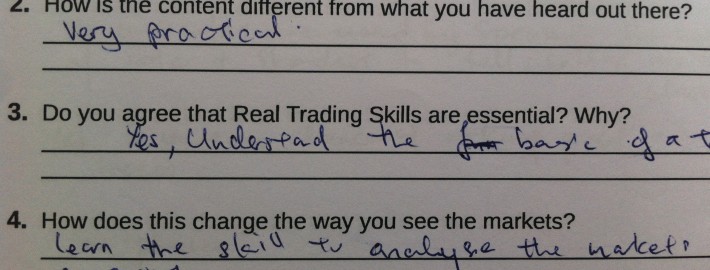 2. How is the content different from what you have heard out there?
Very practical.
3. Do you agree that Real Trading Skills are essential? Why?
Yes, Understand the basic of a t
4. How does this change the way you see the markets?
learn the skill to analyse the markets